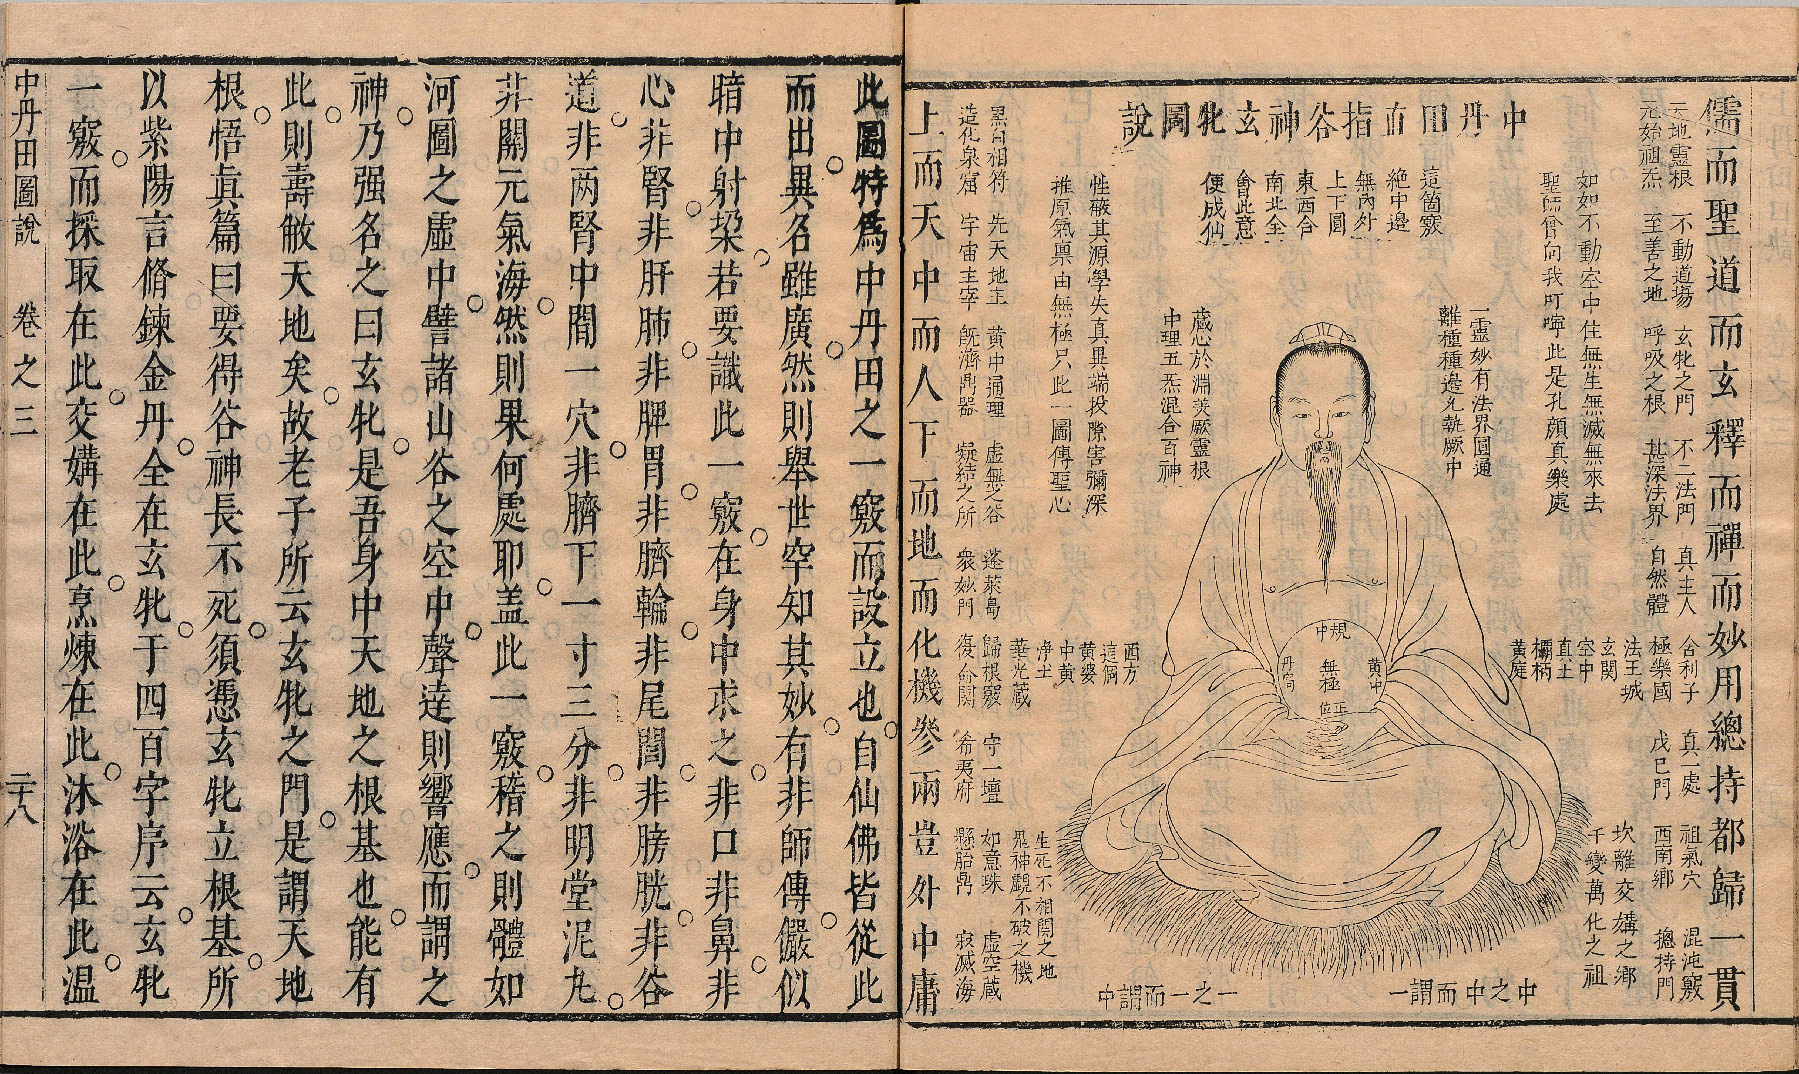 儒而聖道而玄釋而禪而妙用總持都歸一貫
天地靈根 不動道場 玄牝之門 不二法門 真主人 舍利子 真一處 祖氣穴 混沌竅
元始祖炁 至善之地 呼吸之根 甚深法界 自然體 極樂國 戊巳門 西南鄉 摠持門
法王城 坎離交媾之鄉
玄關 千變萬化之祖
空中
直土
欛柄
黃庭
中丹田直指谷神玄牝圖說
如如不動空中住無生無滅無來去
聖師曾向我叮嚀此是孔顏真樂處
一靈妙有法界圓通
離種種邊允執厥中
這箇竅
絶中邊
無內外
上下圓
東西合
南北全
會此意
便成仙
藏心於淵美厥靈根
中理五炁混合百神
性破其源學失真異端投隙害彌深
推原氣稟由無極只此一圖傳聖心
規中
黃中
無極
丹扃
正位
西方
這個
黃婆
中黃
淨土
華光藏
黑白相符 先天地主 黃中通理 虛無之谷 蓬萊島 歸根竅 守一壇 如意珠 虛空藏
造化泉窟 宇宙主宰 旣濟鼎器 凝結之所 衆妙門 復命關 希夷府 懸胎鼎 寂滅海
生死不相關之地
鬼神覷不破之機
中之中而謂一
一之一而謂中
上而天中而人下而地而化機參兩豈外中庸
此圖特爲中丹田之一竅而設立也自仙佛皆從此
而出異名雖廣然則舉世罕知其妙有非師傳儼似
暗中射垜若要識此一竅在身中求之非口非鼻非
心非腎非肝肺非脾胃非臍輪非尾閭非膀胱非谷
道非两腎中間一穴非臍下一寸三分非明堂泥丸
非關元氣海然則果何處耶盖此一竅稽之則體如
河圖之虛中譬諸山谷之空中聲達則響應而謂之
神乃强名之曰玄牝是吾身中天地之根基也能有
此則壽敝天地矣故老子所云玄牝之門是謂天地
根悟眞篇曰要得谷神長不死須憑玄牝立根基所
以紫陽言脩鍊金丹全在玄牝于四百字序云玄牝
一竅而採取在此交媾在此烹煉在此沐浴在此温
中丹田圖說 卷之三 二十八